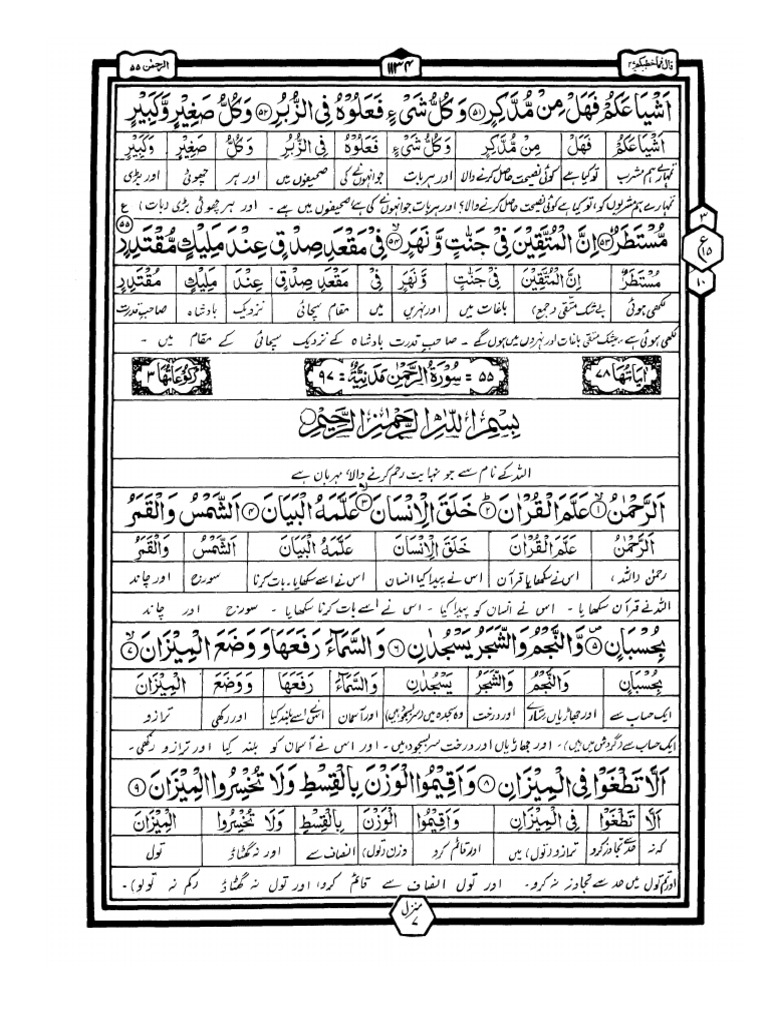 الرحمٰن ۵۵
۱۱۳۴
قال فما خطبكم ۲۷
اَشْيَاعَكُمْ فَهَلْ مِنْ مُّدَّكِرٍ ۵۱ وَكُلُّ شَيْءٍ فَعَلُوْهُ فِى الزُّبُرِ ۵۲ وَكُلُّ صَغِيْرٍ وَّكَبِيْرٍ
اَشْيَاعَكُمْ فَهَلْ مِنْ مُّدَّكِرٍ وَكُلُّ شَيْءٍ فَعَلُوْهُ فِى الزُّبُرِ وَكُلُّ صَغِيْرٍ وَكَبِيْرٍ
تمہارے ہم مشرب تو کیا ہے کوئی نصیحت حاصل کرنے والا اور ہر بات جو انہوں نے کی صحیفوں میں اور ہر چھوٹی اور بڑی
تمہارے ہم مشربوں کو، تو کیا ہے کوئی نصیحت حاصل کرنے والا؟ اور ہر بات جو انہوں نے کی ہے صحیفوں میں ہے۔ اور ہر چھوٹی بڑی (بات)
۳
ع
۱۵
۱۰
مُّسْتَطَرٌ ۵۳ اِنَّ الْمُتَّقِيْنَ فِىْ جَنّٰتٍ وَّنَهَرٍ ۵۴ فِىْ مَقْعَدِ صِدْقٍ عِنْدَ مَلِيْكٍ مُّقْتَدِرٍ ۵۵
مُسْتَطَرٌ اِنَّ الْمُتَّقِيْنَ فِىْ جَنّٰتٍ وَّنَهَرٍ فِىْ مَقْعَدِ صِدْقٍ عِنْدَ مَلِيْكٍ مُقْتَدِرٍ
لکھی ہوئی بے شک متقی (جمع) باغات میں اور نہریں میں مقام سچائی نزدیک بادشاہ صاحبِ قدرت
لکھی ہوئی ہے، بیشک متقی باغات اور نہروں میں ہوں گے۔ صاحبِ قدرت بادشاہ کے نزدیک سچائی کے مقام میں۔
اٰيَاتُهَا ۷۸
۵۵ = سُوْرَةُ الرَّحْمٰنِ مَدَنِيَّةٌ : ۹۷
رُكُوْعَاتُهَا ۳
بِسْمِ اللّٰهِ الرَّحْمٰنِ الرَّحِيْمِ
اللہ کے نام سے جو نہایت رحم کرنے والا، مہربان ہے
اَلرَّحْمٰنُ ۱ عَلَّمَ الْقُرْاٰنَ ۲ خَلَقَ الْاِنْسَانَ ۳ عَلَّمَهُ الْبَيَانَ ۴ اَلشَّمْسُ وَالْقَمَرُ
اَلرَّحْمٰنُ عَلَّمَ الْقُرْاٰنَ خَلَقَ الْاِنْسَانَ عَلَّمَهُ الْبَيَانَ اَلشَّمْسُ وَالْقَمَرُ
رحمٰن (اللہ) اس نے سکھایا قرآن اس نے پیدا کیا انسان اس نے اسے سکھایا۔ بات کرنا سورج اور چاند
اللہ نے قرآن سکھایا۔ اس نے انسان کو پیدا کیا۔ اس نے اسے بات کرنا سکھایا۔ سورج اور چاند
بِحُسْبَانٍ ۵ وَّالنَّجْمُ وَالشَّجَرُ يَسْجُدٰنِ ۶ وَالسَّمَآءَ رَفَعَهَا وَوَضَعَ الْمِيْزَانَ ۷
بِحُسْبَانٍ وَالنَّجْمُ وَالشَّجَرُ يَسْجُدٰنِ وَالسَّمَآءَ رَفَعَهَا وَوَضَعَ الْمِيْزَانَ
ایک حساب سے اور جھاڑیاں، تارے اور درخت وہ سجدہ میں (سربسجود ہیں) اور آسمان اسنے اسے بلند کیا اور رکھی ترازو
ایک حساب سے (گردش میں ہیں)۔ اور جھاڑیاں اور درخت سربسجود ہیں۔ اور اس نے آسمان کو بلند کیا اور ترازو رکھی۔
اَلَّا تَطْغَوْا فِى الْمِيْزَانِ ۸ وَاَقِيْمُوا الْوَزْنَ بِالْقِسْطِ وَلَا تُخْسِرُوا الْمِيْزَانَ ۹
اَلَّا تَطْغَوْا فِى الْمِيْزَانِ وَاَقِيْمُوا الْوَزْنَ بِالْقِسْطِ وَلَا تُخْسِرُوا الْمِيْزَانَ
کہ نہ حد سے تجاوز کرو ترازو (تول) میں اور قائم کرو وزن (تول) انصاف سے اور نہ گھٹاؤ تول
اور تم تول میں حد سے تجاوز نہ کرو۔ اور تول انصاف سے قائم کرو، اور تول نہ گھٹاؤ (کم نہ تولو)۔
منزل ۷